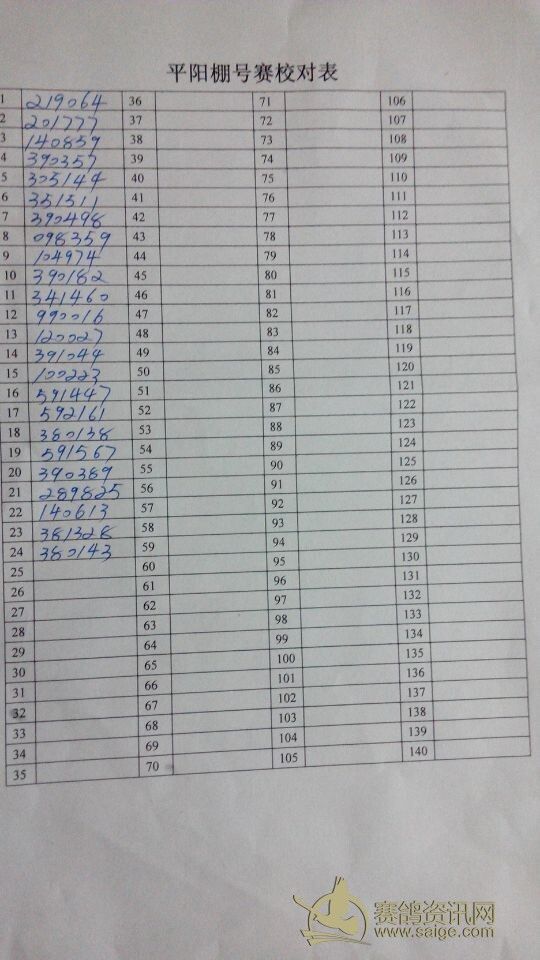 平阳棚号赛校对表
1 219064 36 71 106
2 201777 37 72 107
3 140859 38 73 108
4 390357 39 74 109
5 305144 40 75 110
6 351511 41 76 111
7 390498 42 77 112
8 098359 43 78 113
9 104974 44 79 114
10 390182 45 80 115
11 341460 46 81 116
12 990016 47 82 117
13 120027 48 83 118
14 391044 49 84 119
15 100223 50 85 120
16 591447 51 86 121
17 592161 52 87 122
18 380138 53 88 123
19 591567 54 89 124
20 390389 55 90 125
21 289825 56 91 126
22 140613 57 92 127
23 381328 58 93 128
24 380143 59 94 129
25 60 95 130
26 61 96 131
27 62 97 132
28 63 98 133
29 64 99 134
30 65 100 135
31 66 101 136
32 67 102 137
33 68 103 138
34 69 104 139
35 70 105 140
赛鸽资讯网
www.saige.com